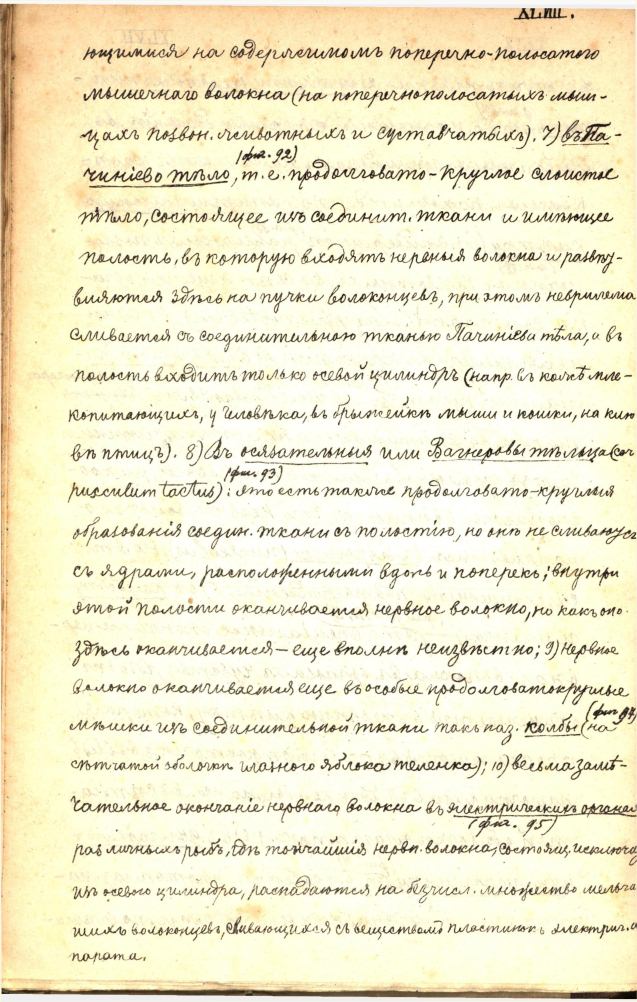 XLVIII.
ющимися на содержимомъ поперечно-полосатого
мышечнаго волокна (на поперечнополосатыхъ мыш-
цахъ позвон. животныхъ и суставчатыхъ). 7) въ Па-
(фиг. 92)
чиніево тѣло, т. е. продолговато-круглое слоистое
тѣло, состоящее изъ соединит. ткани и имѣющее
полость, въ которую входятъ нервныя волокна и развѣт-
вляются здѣсь на пучки волоконцевъ, при этомъ неврилема
сливается съ соединительною тканью Пачиніева тѣла, а въ
полость входитъ только осевой цилиндръ (напр. въ кожѣ мле-
копитающихъ, у человѣка, въ брыжейкѣ мыши и кошки, на
вѣ птицъ). 8) Въ осязательныя или Вагнеровы тѣльца (cor
(фиг. 93)
pusculum tactus): это есть также продолговато-круглыя
образованія соедин. ткани съ полостію, но онѣ не сливаются
съ ядрами, расположенными вдоль и поперекъ; внутри
этой полости оканчивается нервное волокно, но какъ оно
здѣсь оканчивается – еще вполнѣ неизвѣстно; 9) нервное
волокно оканчивается еще въ особые продолговатокруглые
(фиг. 94)
мѣшки изъ соединительной ткани такъ наз. колбы (на
сѣтчатой оболочкѣ глазного яблока теленка); 10) весьма замѣ-
чательное окончаніе нервнаго волокна въ электрическихъ органахъ
(фиг. 95)
различныхъ рыбъ, гдѣ тончайшія нервн. волокна, состоящ. исключ
изъ осевого цилиндра, распадаются на безчисл. множество мельча
шихъ волоконцевъ, сливающихся съ веществомъ пластинокъ электрич. а
парата.